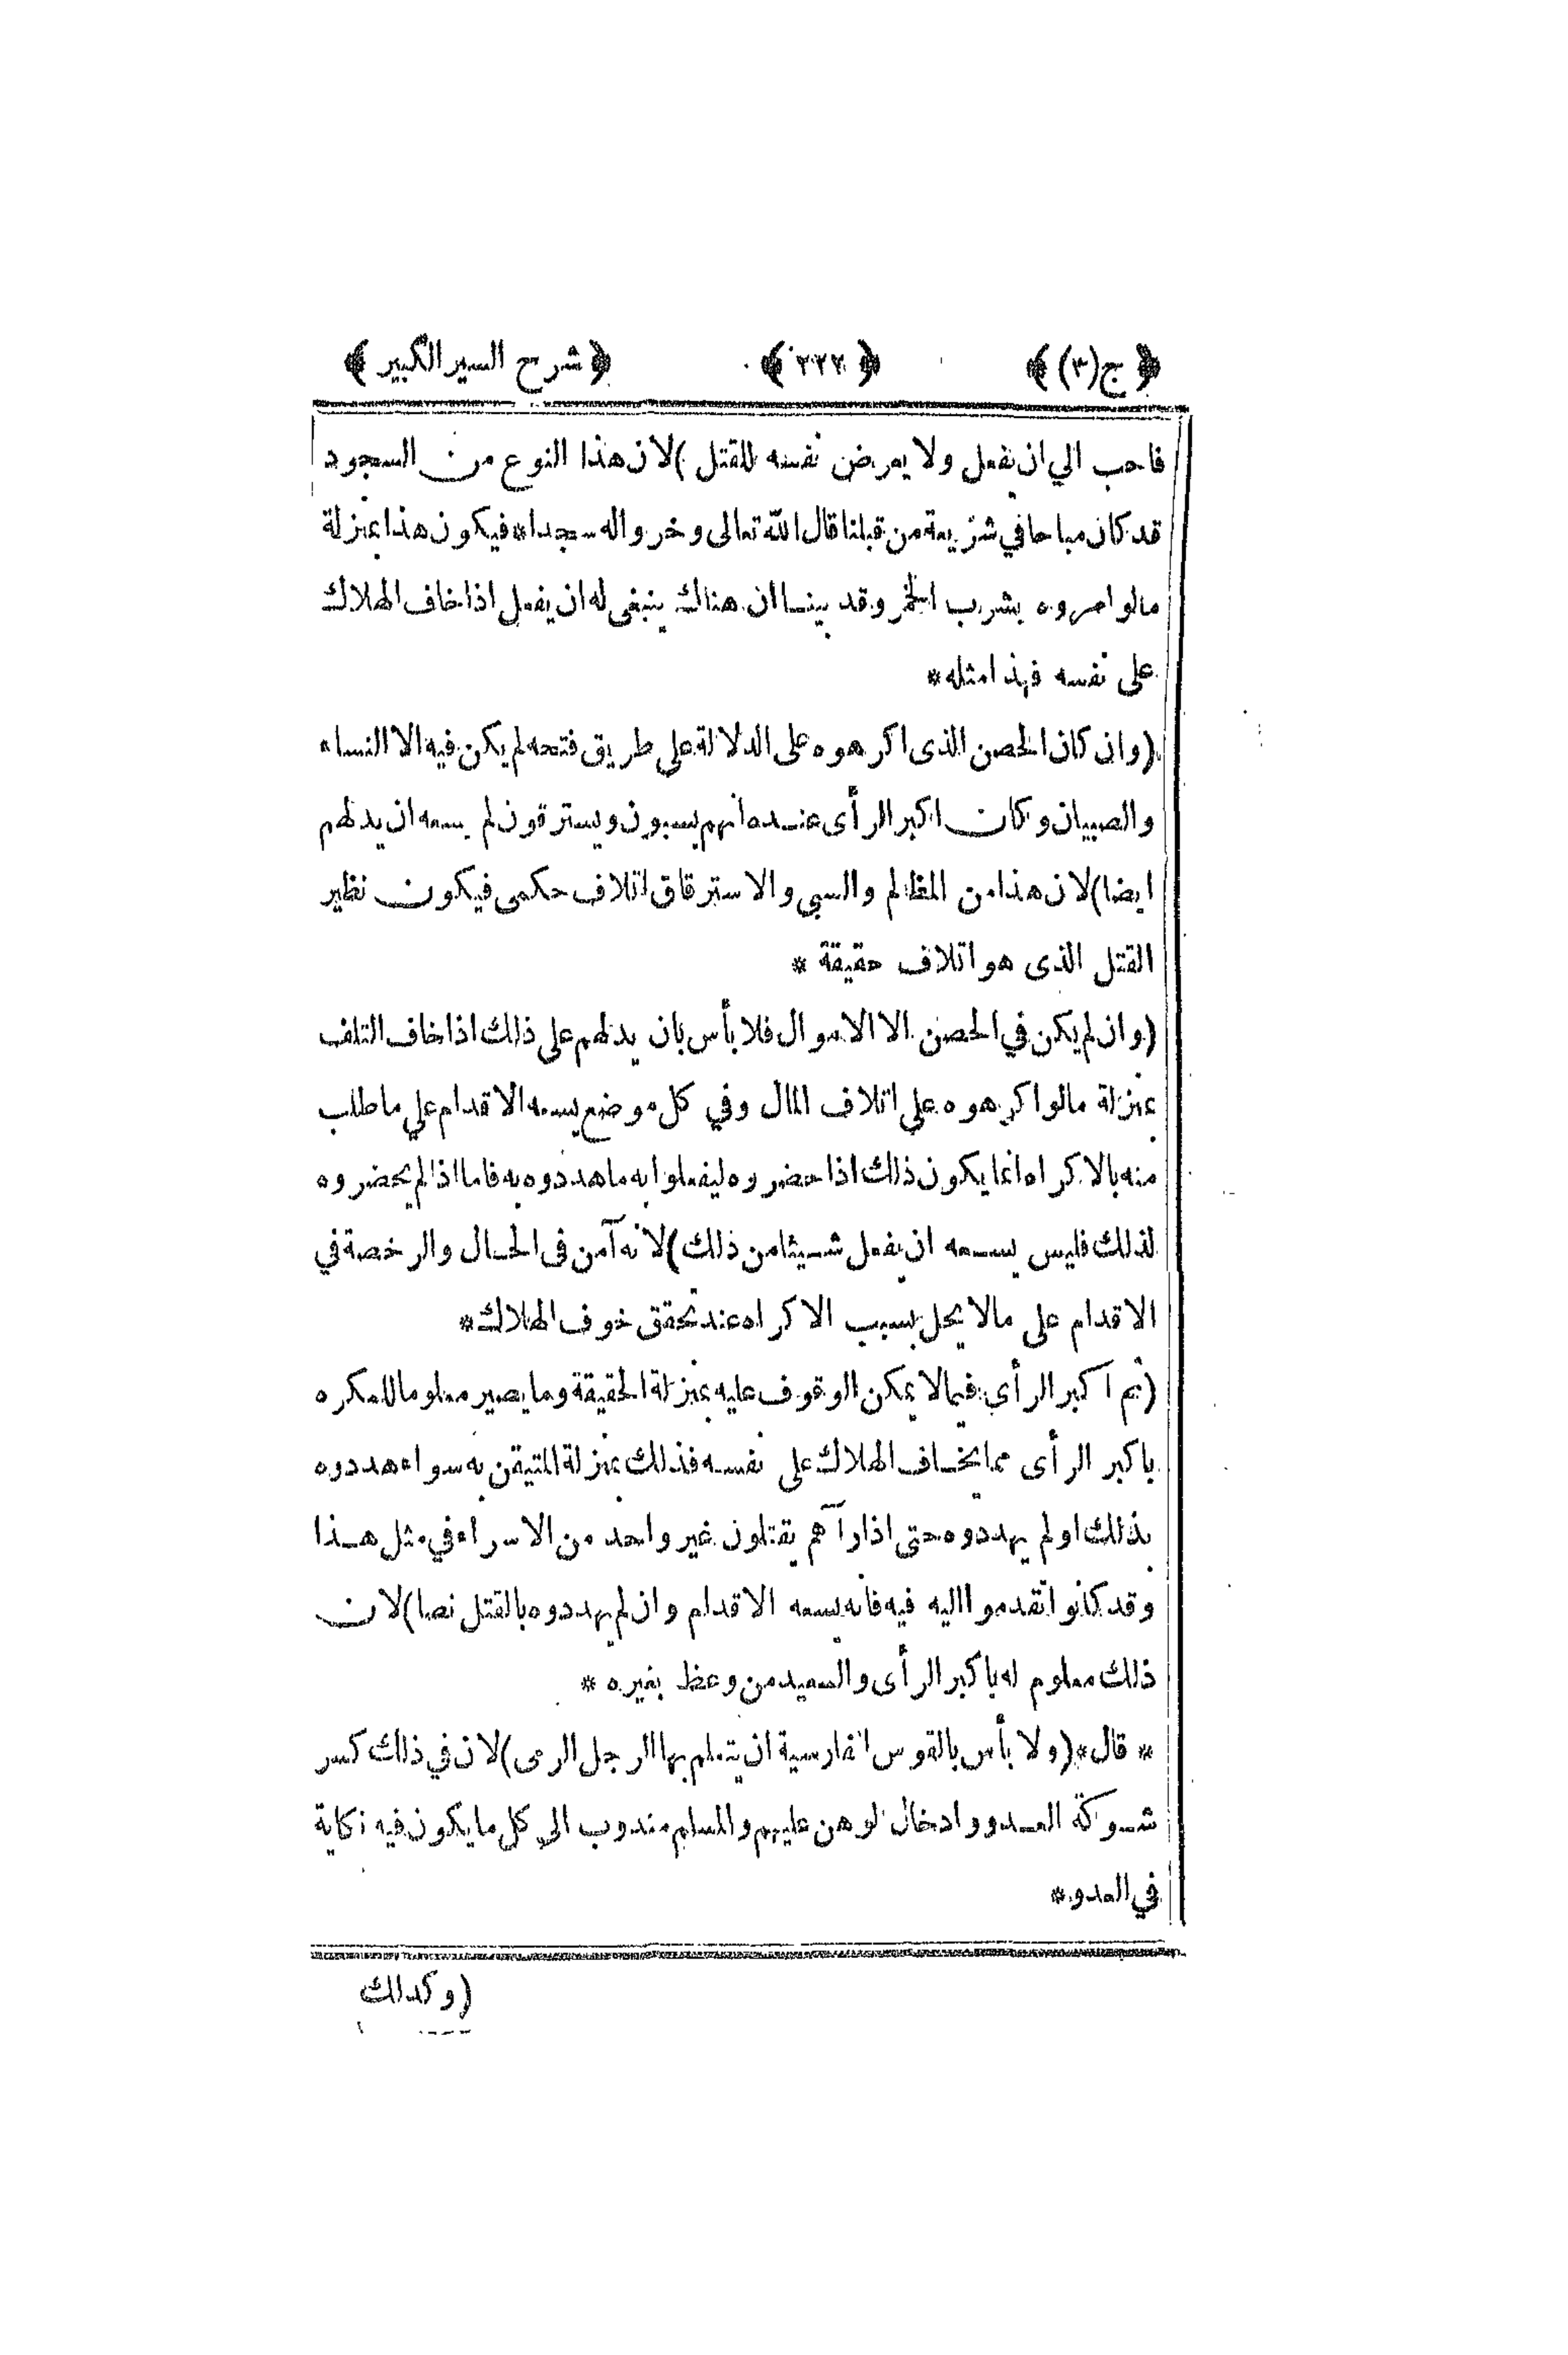 ﴿ ج(٣) ﴾ ﴿ ٢٢٢ ﴾ ﴿ شرح السير الكبير ﴾
فاحب الي ان يفعل ولا يعرض نفسه للقتل )لان هذا النوع من السجود
قد كان مباحا في شريعة من قبلنا قال الله تعالى وخروا له سجدا* فيكون هذا بمنزلة
مالو امروه بشرب الخمر وقد بينا ان هناك ينبغى له ان يفعل اذا خاف الهلاك
على نفسه فهذا مثله*
(وان كان الحصن الذى اكرهوه على الدلالة على طريق فتحه لم يكن فيه الا النساء
والصبيان وكان اكبر الرأى عنده انهم يسبون ويسترقون لم يسعه ان يدلهم
ايضا)لان هذا من المظالم والسبي والاسترقاق اتلاف حكمى فيكون نظير
القتل الذى هو اتلاف حقيقة *
(وان لم يكن في الحصن الا الاموال فلا بأس بان يدلهم على ذلك اذا خاف التلف
بمنزلة مالو اكرهوه علي اتلاف المال وفي كل موضع يسعه الاقدام علي ما طلب
منه بالاكراه انما يكون ذلك اذا حضروه ليفعلوا به ما هددوه به فاما اذا لم يحضروه
لذلك فليس يسعه ان يفعل شيئا من ذلك)لانه آمن فى الحال والرخصة في
الاقدام على مالا يحل بسبب الاكراه عند تحقق خوف الهلاك*
(ثم اكبر الرأي فيما لا يمكن الوقوف عليه بمنزلة الحقيقة وما يصير معلوما للمكره
باكبر الرأى مما يخاف الهلاك على نفسه فذلك بمنزلة المتيقن به سواء هددوه
بذلك او لم يهددوه حتى اذا رآهم يقتلون غير واحد من الاسراء في مثل هذا
وقد كانوا تقدموا اليه فيه فانه يسعه الاقدام وان لم يهددوه بالقتل نصا)لان
ذلك معلوم له باكبر الرأى والسعيد من وعظ بغيره *
* قال*(ولا بأس بالقوس الفارسية ان يتعلم بها الرجل الرمى)لان في ذلك كسر
شوكة العدو وادخال الوهن عليهم والمسلم مندوب الي كل ما يكون فيه نكاية
في العدو*
(وكذلك